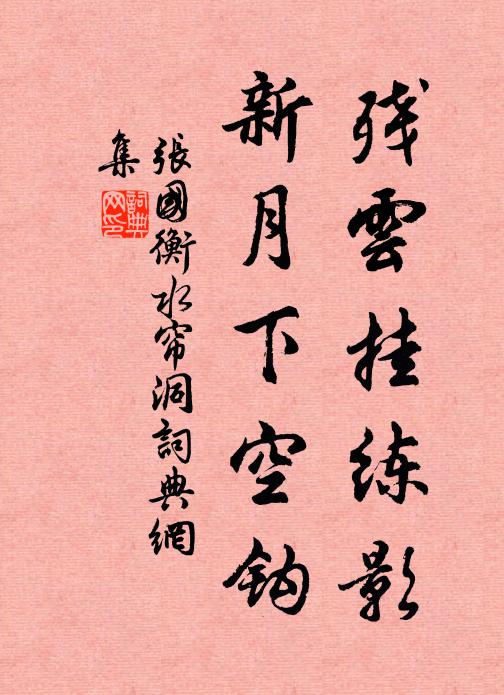 残雲挂练影
新月下空钩
張國衡水帘洞詞典網
集
詞典
网印